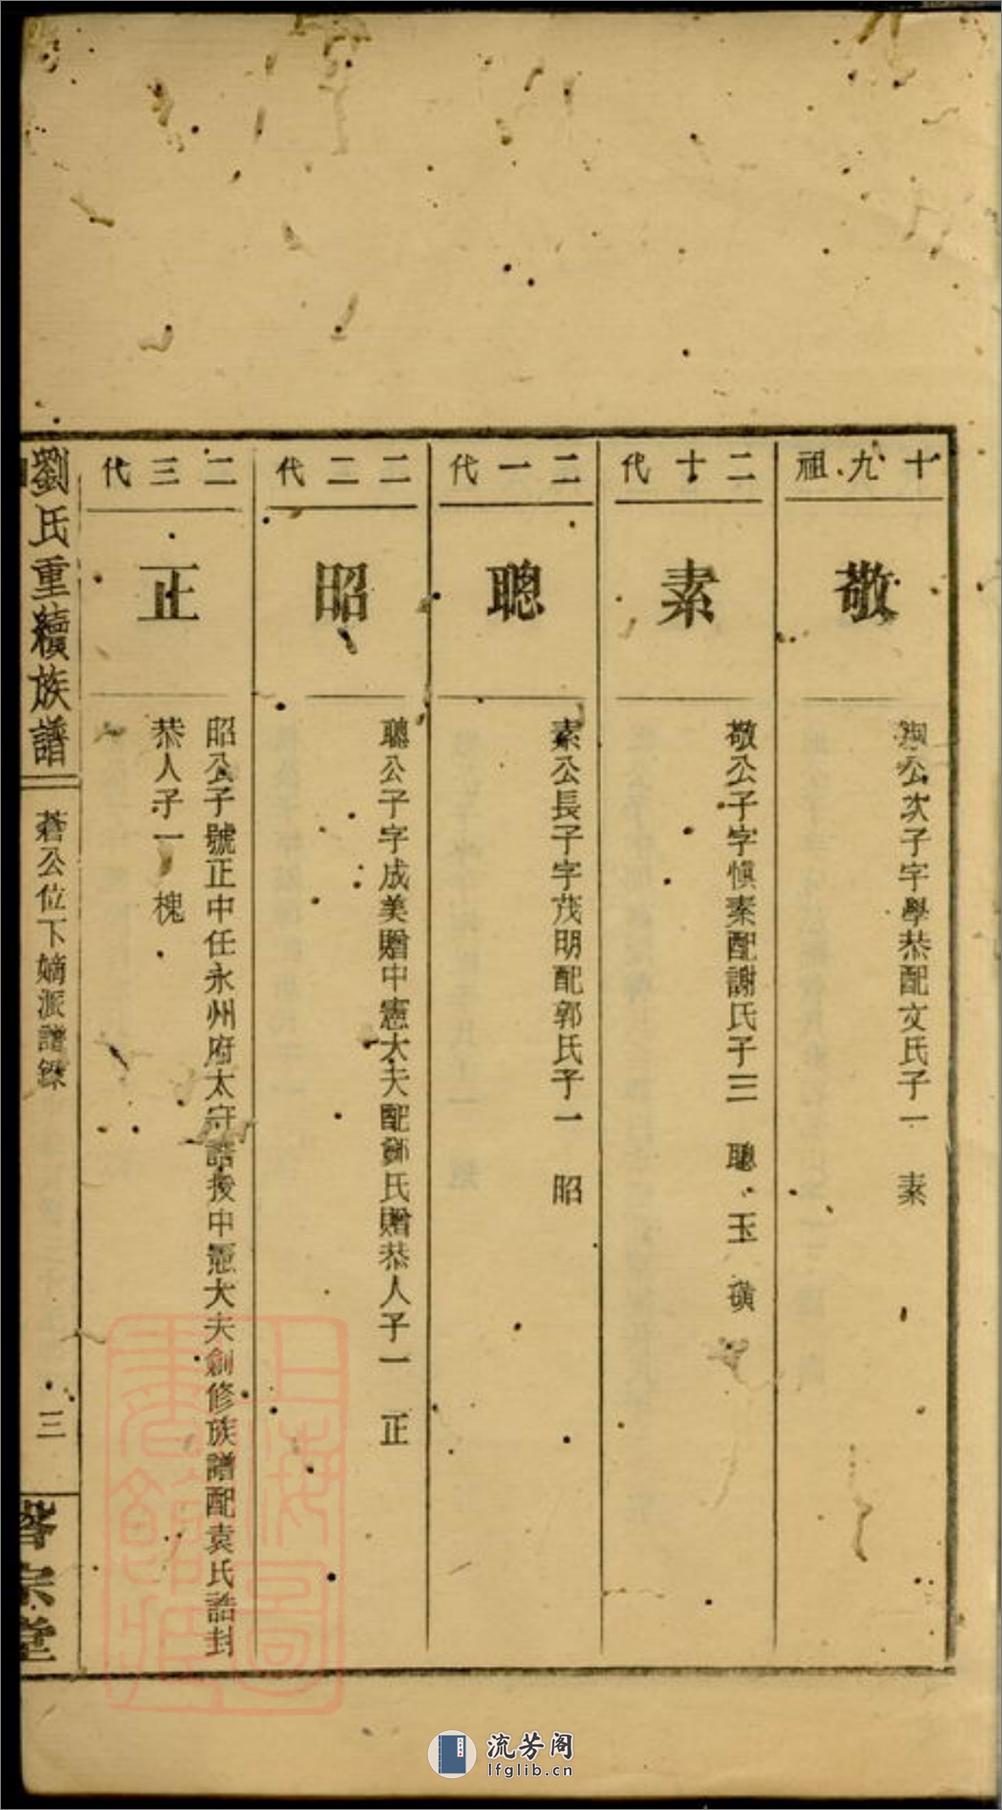 十九祖
敬
公次子字學恭配文氏子一 素
二十代
素
敬公子字愼素配謝氏子三 聰 玉 璜
二一代
聰
素公長子字茂明配郭氏子一 昭
二二代
昭
聰公子字成美贈中憲大夫配鄭氏贈恭人子一 正
二三代
正
昭公子號正中任永州府太守誥授中憲大夫創修族譜配袁氏誥封
恭人子一 槐
劉氏重續族譜
蒼公位下嫡派譜錄
三
宗堂
上海圖書館藏
流芳阁
lfglib.cn